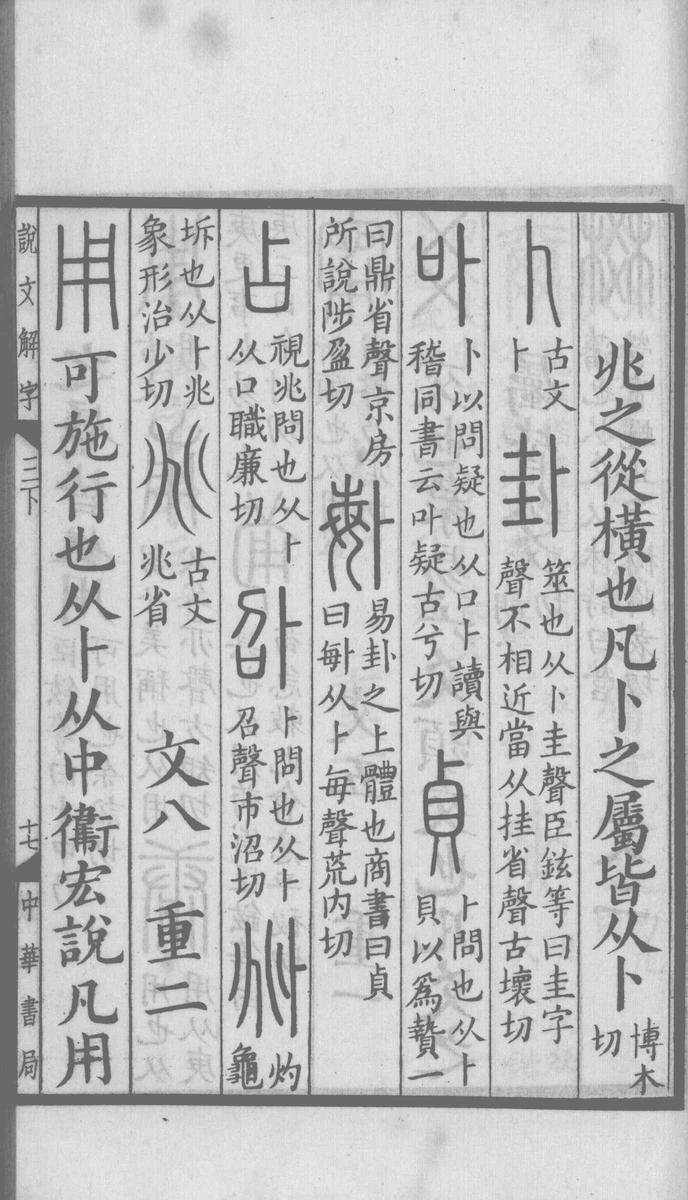 兆之從橫也凡卜之屬皆从卜博木切
卜古文卜卦筮也从卜圭聲臣鉉等曰圭字聲不相近當从挂省聲古壞切
卟卜以問疑也从口卜讀與稽同書云卟疑古兮切貞卜問也从卜貝以爲贄一
曰鼎省聲京房所說陟盈切𠧩易卦之上體也商書曰貞曰𠧩从卜每聲荒内切
占視兆問也从卜从口職廉切𠧙卜問也从卜召聲市沼切𠧞灼龜
坼也从卜兆象形治少切兆古文兆省 文八 重二
用可施行也从卜从中衞宏說凡用
說文解字 三下 十七 中華書局